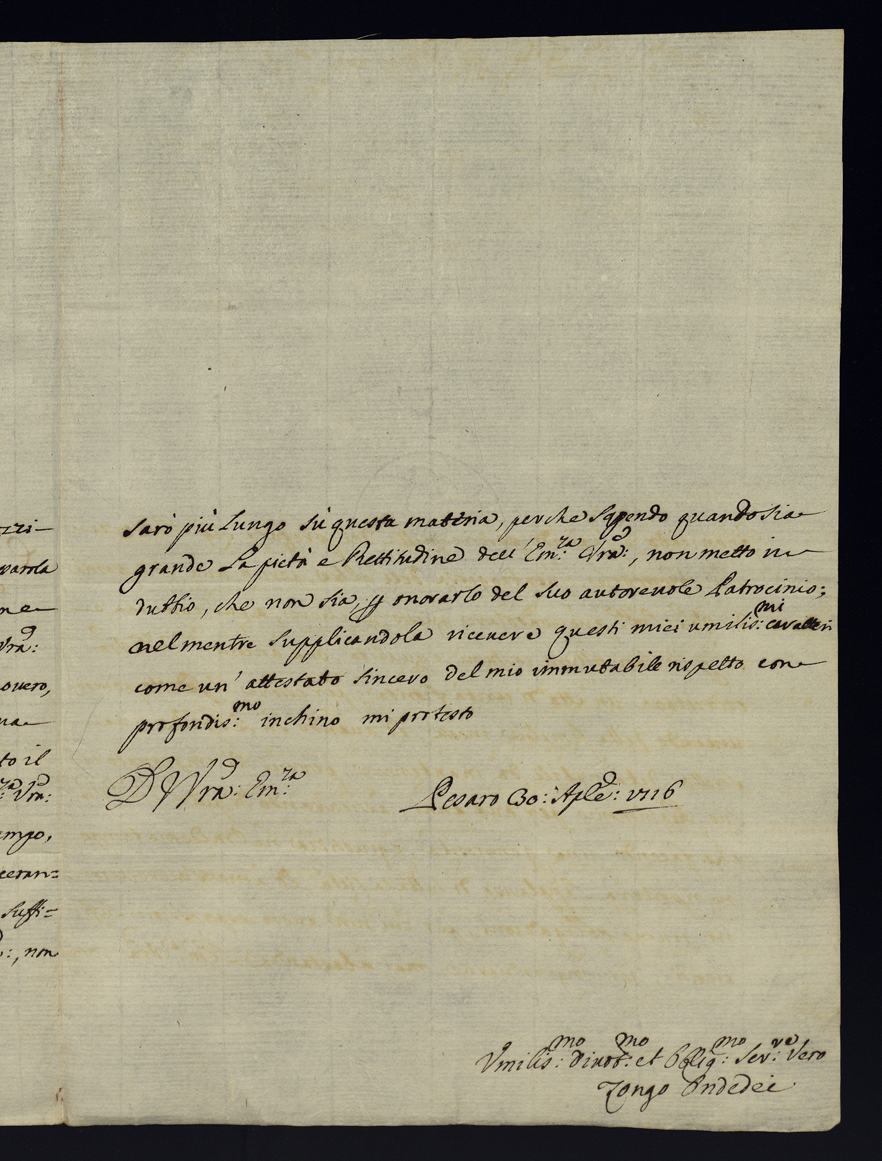 zzi-
varola
ne
Vrã:
overo,
na
to il
za Vrã:
empo,
ceran=
suffi=
:, non
sarò più lungo sù questa materia, perche sapendo quando sia
grande La pietà e Rettitudine dell' Em:za Vrã:, non metto in
dubio, che non sia, ꝑ onorarlo del suo autorevole Patrocinio;
nel mentre supplicandola ricevere questi miei umilis:mi caratteri
come un' attestato sincero del mio immutabile rispetto con
profondis:mo inchino mi protesto
D Vrã: Em:za
Pesaro 30: Aplẽ: 1716
Vmilis:mo Divot:mo et Obblig:mo Ser:ve Vero
Zongo Ondedei